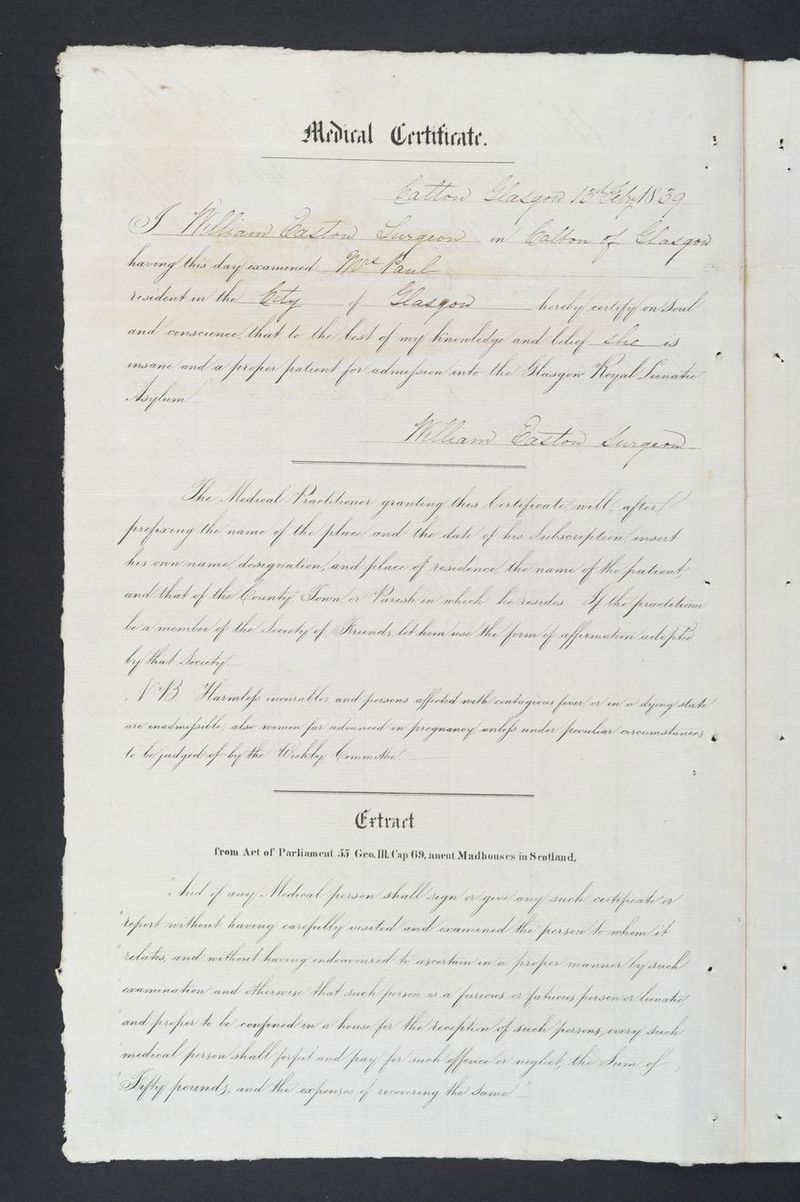 Medical Certificate.
Calton Glasgow 13th Feby 1839
I William Easton Surgeon in Calton of Glasgow
having this day examined Mrs Paul
resident in the City of Glasgow hereby certify on Soul
and conscience, that to the best of my knowledge and belief she is
insane and a proper patient for admission into the Glasgow Royal Lunatic
Asylum.
William Easton Surgeon
The Medical Practitioner granting this Certificate will, after
prefixing the name of the place and the date of his Subscription, insert
his own name, designation, and place of residence, the name of the patient,
and that of the County, Town or Parish in which he resides. If the practitioner
be a member of the Society of Friends, let him use the form of affirmation adopted
by that Society.
NB Harmless incurables, and persons affected with contagious fever, or in a dying state
are inadmissible, also women far advanced in pregnancy, unless under peculiar circumstances,
to be judged of by the Weekly Committee.
Extract
from Act of Parliament 55 Geo. III. Cap 69, anent Madhouses in Scotland.
"And if any Medical person shall sign or give any such certificate or
"report without having carefully visited and examined the person to whom it
"relates, and without having endeavoured to ascertain in a proper manner by such
"examination and otherwise that such person is a furious or fatuous person or lunatic
"and proper to be confined in a house for the reception of such persons, every such
"medical person shall forfeit and pay for such offence or neglect, the Sum of
"Fifty pounds, and the expenses of recovering the Same"